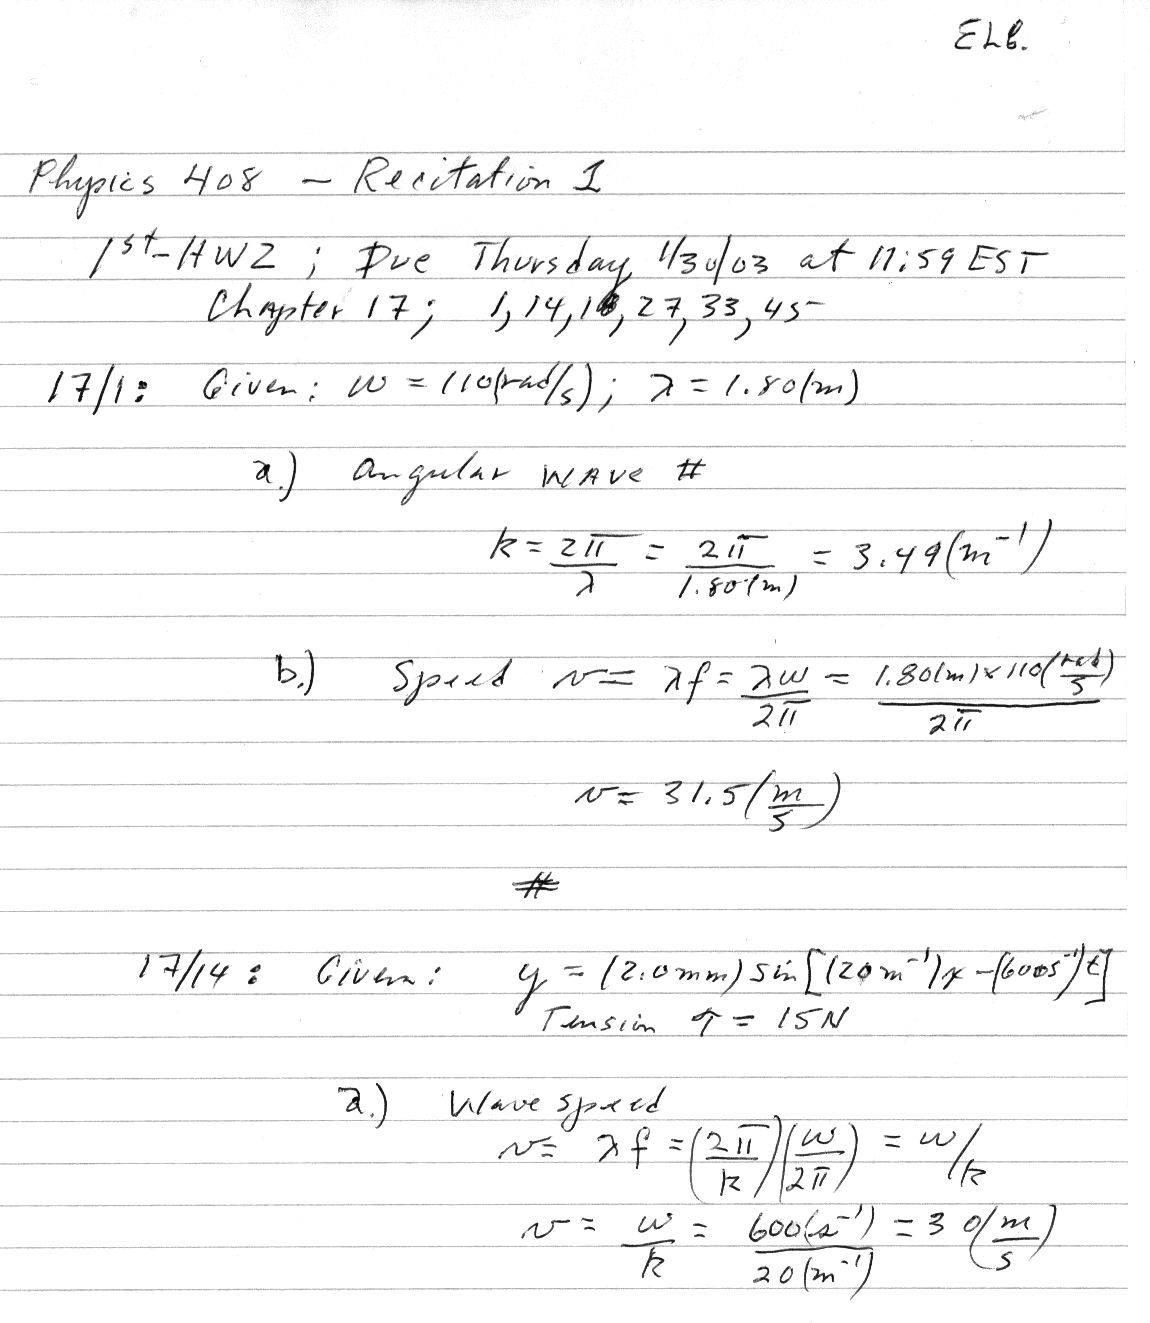 ELB.
Physics 408 – Recitation 1
1st-HW2 ; Due Thursday 1/30/03 at 11:59 EST
Chapter 17; 1, 14, 18, 27, 33, 45
17/1: Given: ω = 110(rad/s); λ = 1.80(m)
a.) Angular WAVE #
k = 2π/λ = 2π/1.80(m) = 3.49(m⁻¹)
b.) Speed v = λf = λω/2π = 1.80(m)×110(rad/s)/2π
v = 31.5(m/s)
#
17/14: Given: y = (2.0mm) sin[(20m⁻¹)x – (600s⁻¹)t]
Tension τ = 15N
a.) Wave speed
v = λf = (2π/k)(ω/2π) = ω/k
v = ω/k = 600(s⁻¹)/20(m⁻¹) = 30(m/s)